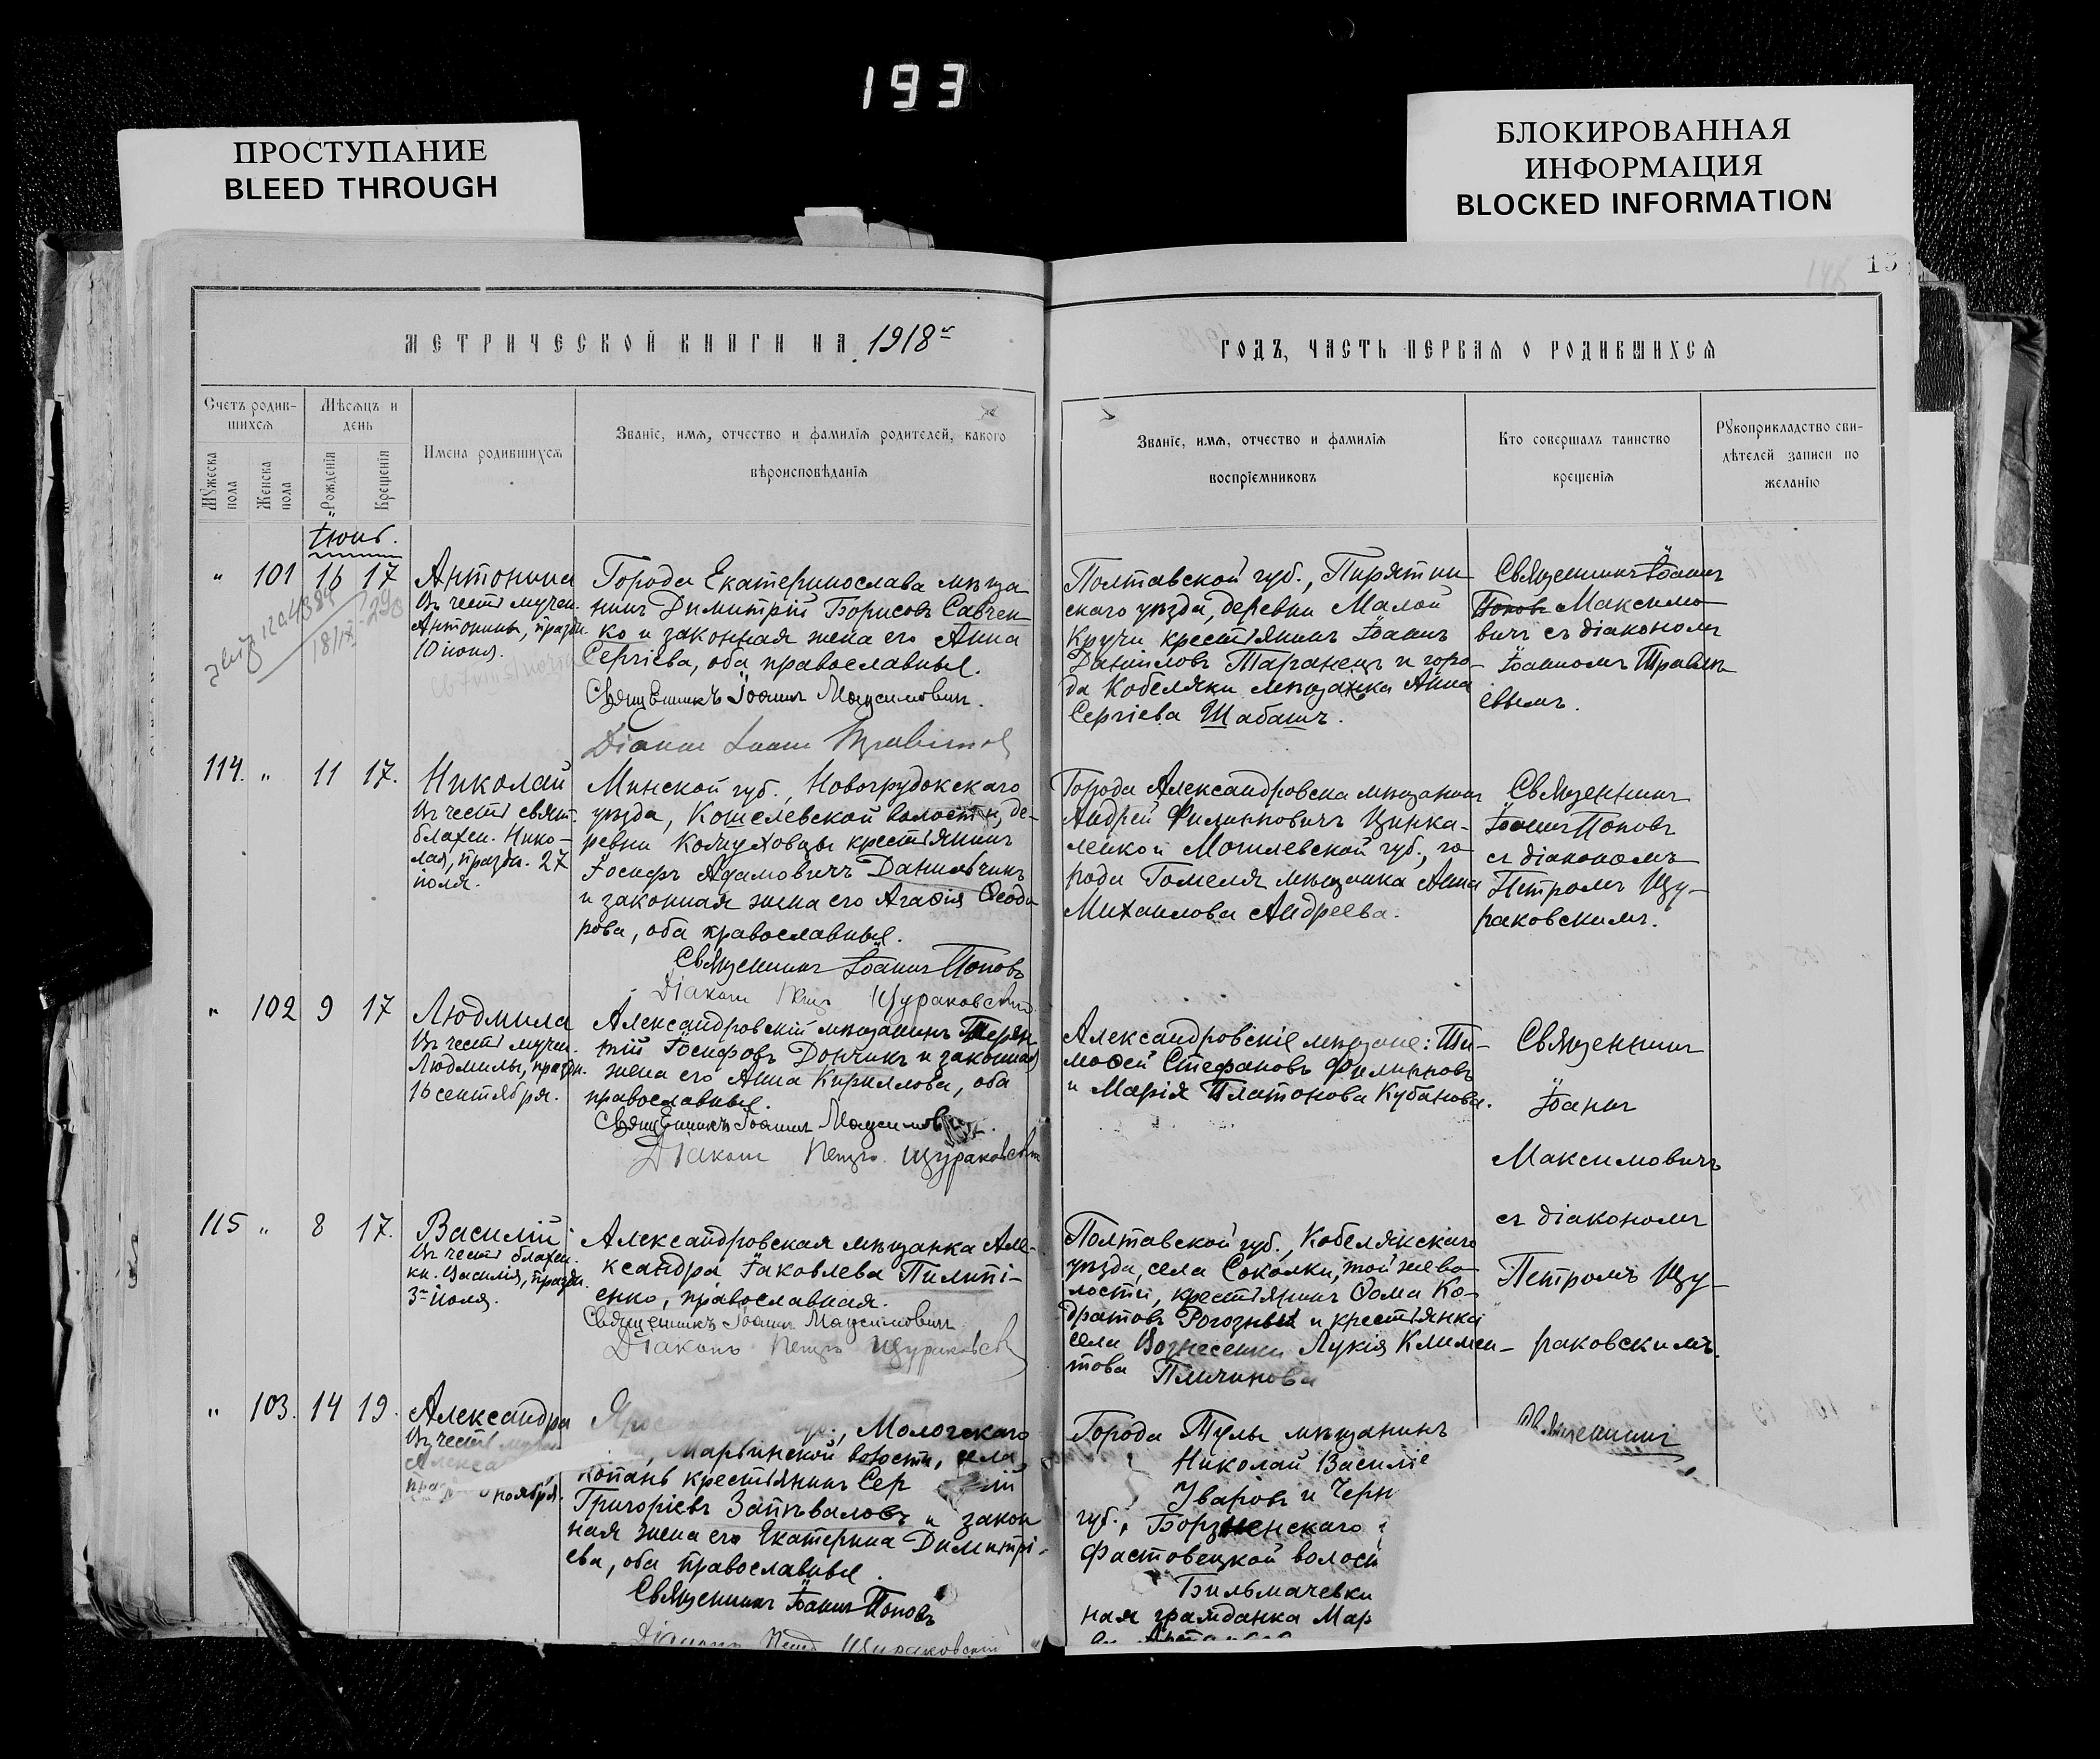 193
ПРОСТУПАНИЕ
BLEED THROUGH
БЛОКИРОВАННАЯ
ИНФОРМАЦИЯ
BLOCKED INFORMATION
15
МЕТРИЧЕСКОЙ КНИГИ НА 1918й
ГОДЪ, ЧАСТЬ ПЕРВАЯ О РОДИВШИХСЯ
Счетъ родив-
шихся
Мужеска
пола
Женска
пола
Мѣсяцъ и
день
Рожденія
Крещенія
Имена родившихся
Званіе, имя, отчество и фамилія родителей, какого
вѣроисповѣданія
Званіе, имя, отчество и фамилія
воспріемниковъ
Кто совершалъ таинство
крещенія
Рукоприкладство сви-
дѣтелей записи по
желанію
Іюнь.
" 101 16 17
Антонина
Въ честь мучен.
Антонины, праздн.
10 іюня.
Города Екатеринослава мѣща-
нинъ Димитрій Борисовъ Савчен-
ко и законная жена его Анна
Сергіева, оба православные.
Священникъ Іоаннъ Максимовичъ.
Діаконъ Іоаннъ
Полтавской губ., Пирятин-
скаго уѣзда, деревни Малой
Кручи крестьянинъ Іоаннъ
Даніиловъ Таранецъ и горо-
да Кобеляки мѣщанка Анна
Сергіева Шабашъ.
Священникъ Іоаннъ
Поповъ Максимо-
вичъ съ діакономъ
Іоанномъ
114. " 11 17.
Николай
Въ честь свят.
блажен. Нико-
лая, праздн. 27
іюля.
Минской губ., Новогрудокскаго
уѣзда, Кошелевской волости, де-
ревни крестьянинъ
Іосифъ Адамовичъ Данильчикъ
и законная жена его Агаѳія Ѳеодо-
рова, оба православные.
Священникъ Іоаннъ Поповъ
Діаконъ Петръ Щураковскій
Города Александровска мѣщанинъ
Андрей Филипповичъ Цинка-
ленко и Могилевской губ., го-
рода Гомеля мѣщанка Анна
Михаилова Андреева.
Священникъ
Іоаннъ Поповъ
съ діакономъ
Петромъ Щу-
раковскимъ.
" 102 9 17
Людмила
Въ честь мучен.
Людмилы, праздн.
16 сентября.
Александровскій мѣщанинъ Терен-
тій Іосифовъ Дончикъ и законная
жена его Анна Кириллова, оба
православные.
Священникъ Іоаннъ Максимовичъ.
Діаконъ Петръ Щураковскій
Александровскіе мѣщане: Ти-
моѳей Стефановъ Филипповъ
и Марія Платонова Кубанова.
Священникъ
Іоаннъ
Максимовичъ
съ діакономъ
Петромъ Щу-
раковскимъ.
115 " 8 17.
Василій
Въ честь блажен.
кн. Василія, праздн.
3го іюля.
Александровская мѣщанка Але-
ксандра Іаковлева Пилипі-
енко, православная.
Священникъ Іоаннъ Максимовичъ
Діаконъ Петръ Щураковскій
Полтавской губ., Кобелякскаго
уѣзда, села Соколки, той же во-
лости, крестьянинъ Ѳома Ко-
дратовъ Рогозный и крестьянка
села Вознесенки Лукія Климен-
това
" 103. 14 19.
Александра
Въ честь
Алекса
ноября.
губ., Мологскаго
Марьинской волости, села
Копань крестьянинъ Сер ій
Григорьевъ Запѣваловъ и закон
ная жена его Екатерина Димитрі-
ева, оба православные.
Священникъ Іоаннъ Поповъ
Діаконъ Петръ Щураковскій
Города Тулы мѣщанинъ
Николай Василіе
Уваровъ и Черн
губ., Борзненскаго
Фастовецкой волост
Бильмачевки
ная гражданка Мар
Священникъ